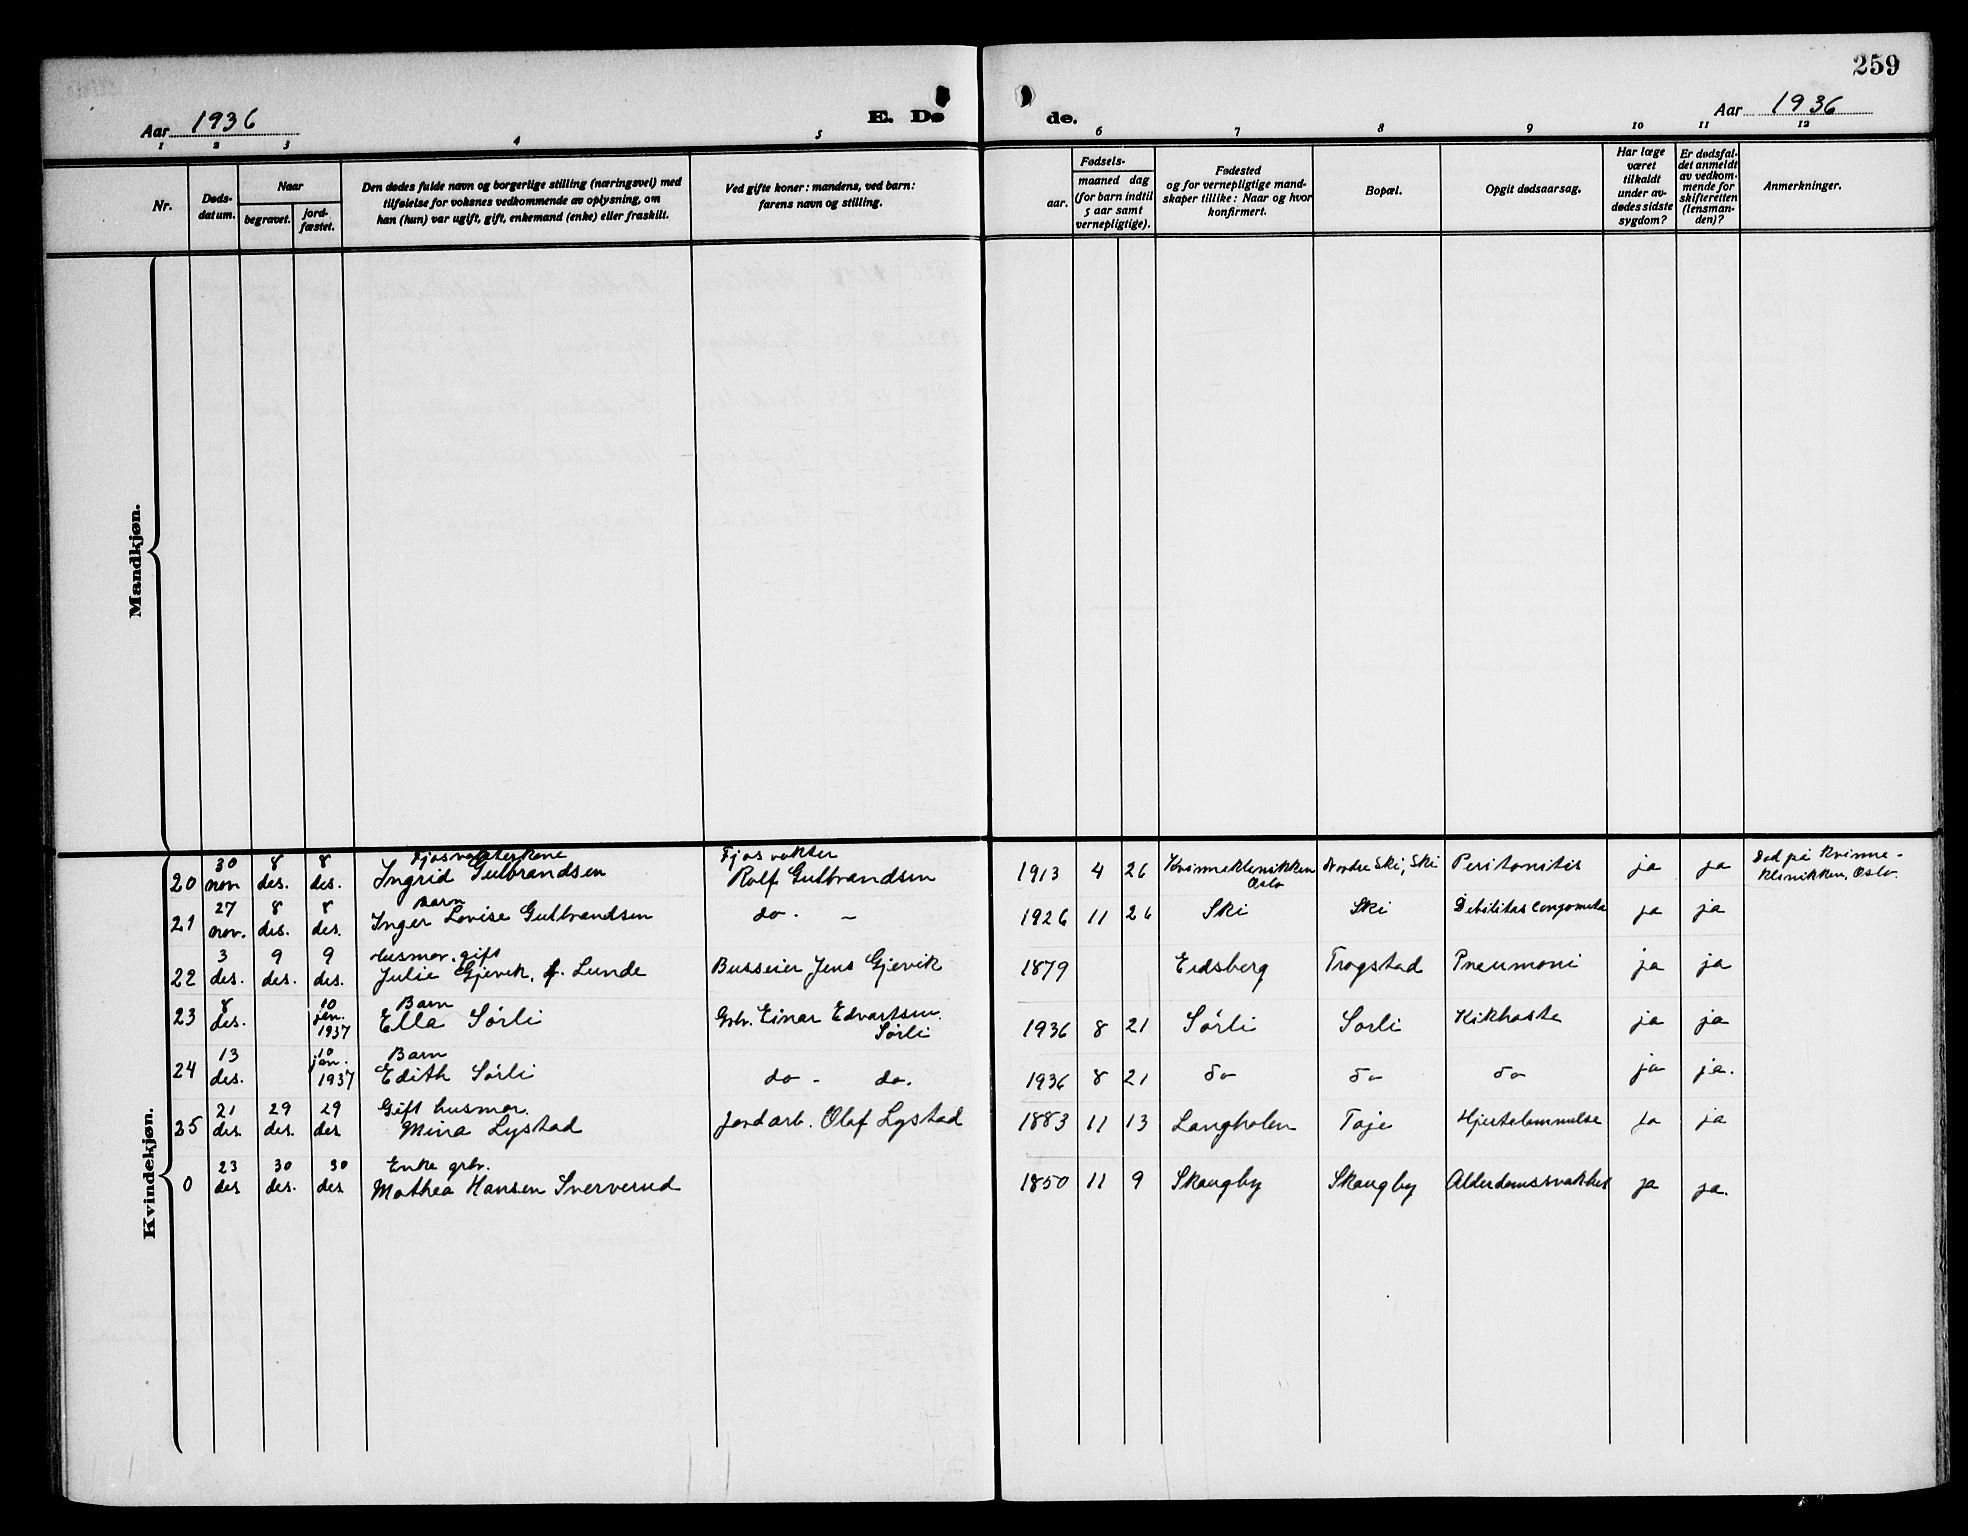 259
Aar 1936
E. Dø
de.
Aar 1936
1 2 3 4 5 6 7 8 9 10 11 12
Nr.
Døds-
datum.
Naar
begravet.
jord-
fæstet.
Den dødes fulde navn og borgerlige stilling (næringsvei) med
tilføielse for voksnes vedkommende av oplysning, om
han (hun) var ugift, gift, enkemand (enke) eller fraskilt.
Ved gifte koner: mandens, ved barn:
farens navn og stilling.
aar.
Fødsels-
maaned dag
(for barn indtil
5 aar samt
vernepligtige).
Fødested
og for vernepligtige mand-
skaper tillike: Naar og hvor
konfirmert.
Bopæl.
Opgit dødsaarsag.
Har læge
været
tilkaldt
under av-
dødes sidste
sygdom?
Er dødsfal-
det anmeldt
av vedkom-
mende for
skifteretten
(lensman-
den)?
Anmerkninger.
Mandkjøn.
Kvindekjøn.
30 8 8 Fjøsvokterkone Fjøsvokter Død på Kvinne-
20 nov. des. des. Ingrid Gulbrandsen Rolf Gulbrandsen 1913 4 26 Kvinneklinikken Nordre Ski, Ski Peritonitis ja ja klinikken, Oslo.
Oslo
27 8 8 Barn
21 nov. des. des. Inger Lovise Gulbrandsen do. - 1926 11 26 Ski Ski Debilitas ja ja
3 9 9 Husmor. gift
22 des. des. des. Julie Gjevik, f. Lunde Busseier Jens Gjevik 1879 Eidsberg Trøgstad Pneumoni ja ja
8 10 Barn
23 des. jan. 1937 Ella Sørli Grbr. Einar Edvartsen 1936 8 21 Sørli Sørli Kikhoste ja ja
Sørli
13 10 Barn
24 des. jan. 1937 Edith Sørli do - do. 1936 8 21 do do do ja ja.
21 29 29 Gift husmor.
25 des. des. des Mina Lystad Jordarb. Olaf Lystad 1883 11 13 Langholen Toje Hjertelammelse ja ja
23 30 30 Enke grbr.
0 des des. des Mathea Hansen Sververud 1850 11 9 Skaugby Skaugby Alderdomssvakhet ja ja.